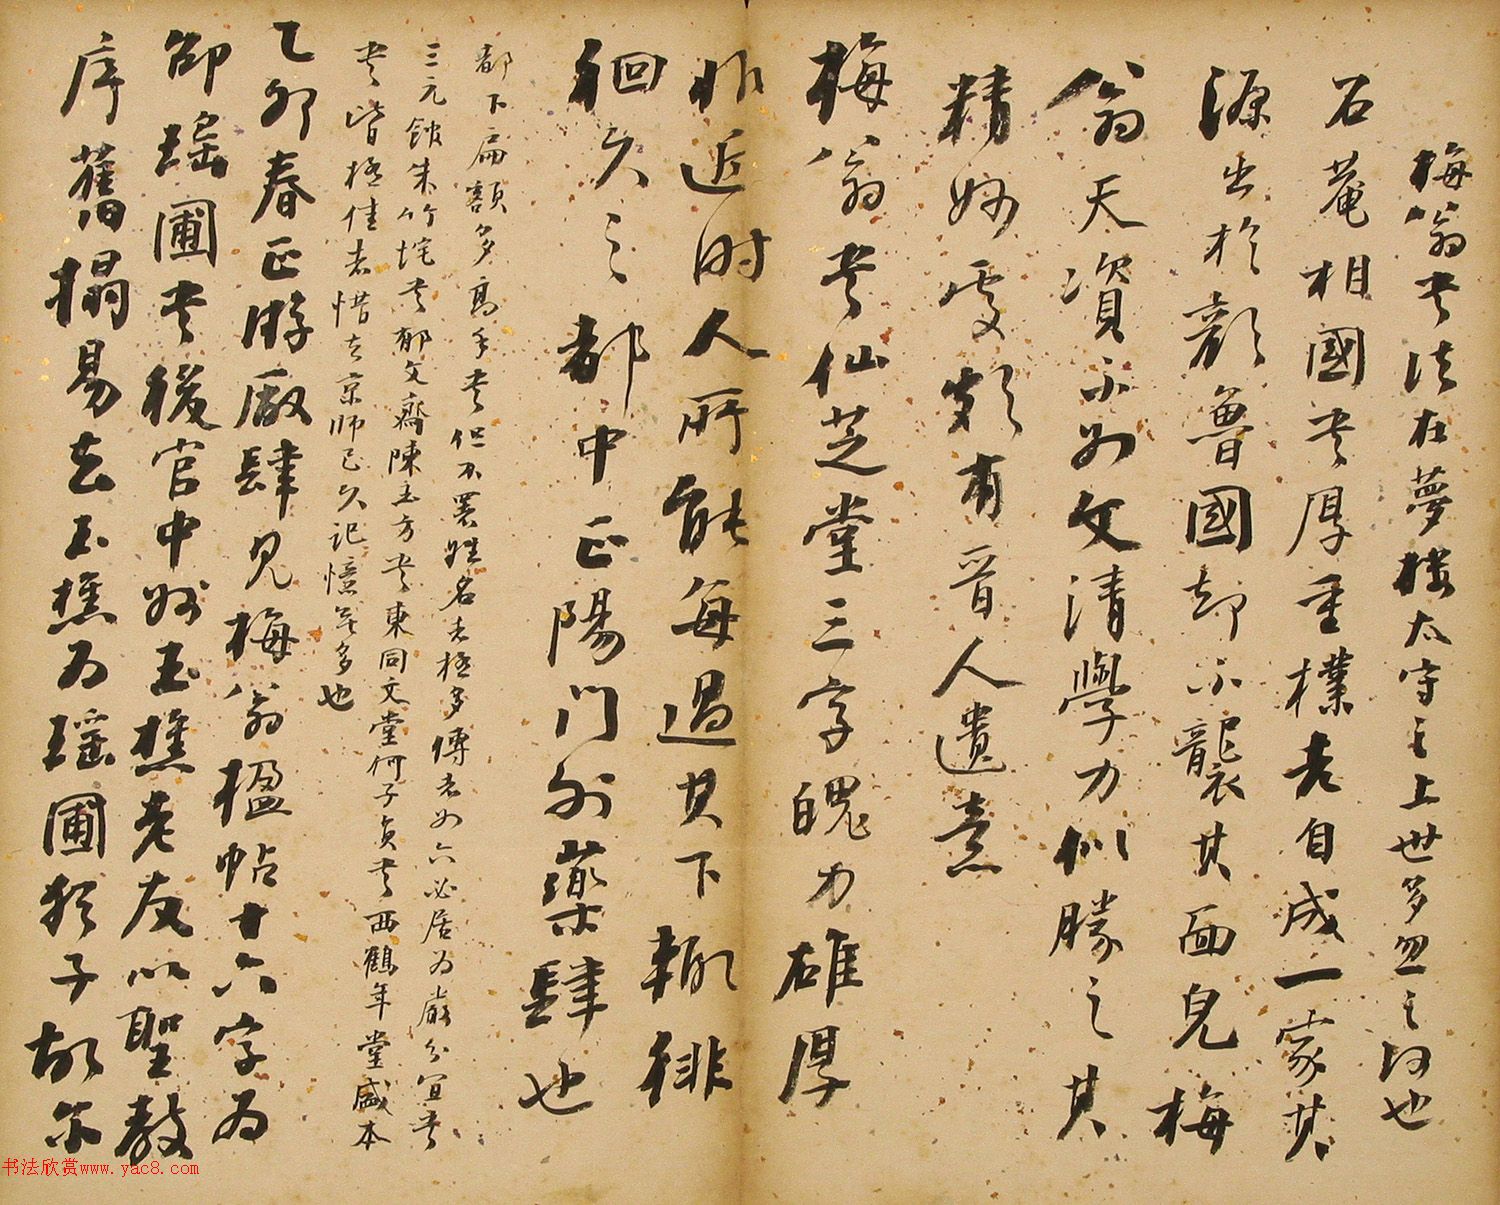 梅翁書法在夢樓太守之上世多忽之何也
石菴相國書厚重樸老自成一家其
源出於顏魯國却不襲其面皃梅
翁天資不如文清學力似勝之其
精妙處頗有晋人遺意
梅翁書仙芝堂三字魄力雄厚
非近時人所能每過其下輒徘
徊久之都中正陽門外藥肆也
都下扁額多高手書但不署姓名者極多傳者如六必居為嚴分宜書
三元館朱竹垞書郁文齋陳玉方書東同文堂何子貞書西鶴年堂盛本
書皆極佳者惜去京師已久記憶無多也
乙卯春正游廠肆見梅翁楹帖十六字為
邵瑤圃書後官中州玉樵老友以聖教
序舊搨易去玉樵為瑤圃猶子故爾
书法欣赏www.yac8.com